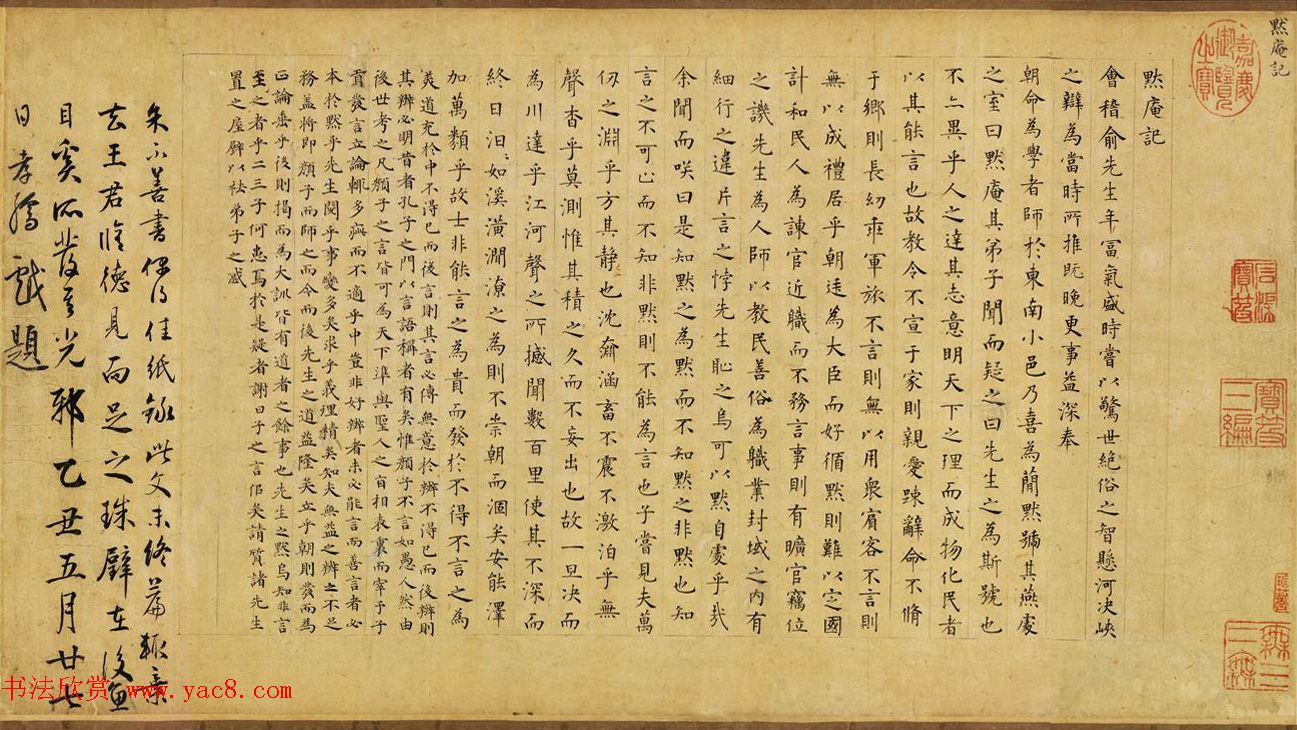 默庵記
默庵記
會稽俞先生年富氣盛時嘗以驚世絕俗之智懸河决峽
之辯為當時所推旣晚更事益深奉
朝命為學者師於東南小邑乃喜為簡默號其燕處
之室曰默庵其弟子聞而疑之曰先生之為斯號也
不亦異乎人之達其志意明天下之理而成物化民者
以其能言也故教令不宣于家則親愛踈辭命不脩
于鄉則長幼乖軍旅不言則無以用衆賓客不言則
無以成禮居乎朝廷為大臣而好循默則難以定國
計和民人為諫官近職而不務言事則有曠官竊位
之譏先生為人師以教民善俗為職業封域之內有
細行之違片言之悖先生恥之烏可以默自處乎哉
余聞而咲曰是知默之為默而不知默之非默也知
言之不可已而不知非默則不能為言也子嘗見夫萬
仞之淵乎方其靜也沈奫涵畜不震不激泊乎無
聲杳乎莫測惟其積之久而不妄出也故一旦决而
為川達乎江河聲之所撼聞數百里使其不深而
終日汨汨如溪潢澗潦之為則不崇朝而涸矣安能澤
加萬類乎故士非能言之為貴而發於不得不言之為
美道充於中不得已而後言則其言必傳無意於辯不得已而後辯則
其辯必明昔者孔子之門以言語稱者有矣惟顏子不言如愚人然由
後世考之凡顏子之言皆可為天下準與聖人之旨相表裏而宰予子
貢發言立論輒多疵而不適乎中豈非好辯者未必能言而善言者必
本於默乎先生閱乎事變多矣求乎義理精矣知夫無益之辯之不足
務蓋將即顏子而師之而今而後先生之道益隆矣立乎朝則發而為
正論垂乎後則揭而為大訓皆有道者之餘事也先生之默烏知非言
至之者乎二三子何患焉於是疑者謝曰子之言信矣請質諸先生
置之屋壁以祛弟子之惑
朱不善書偶得佳紙錄此文未終篇輒棄
去王君脩德見而足之珠璧在後魚
目奚所發其光邪乙丑五月廿七
日孝孺戲題
嘉慶御覽之寶
石渠寶笈
寶笈三編
書法欣賞 www.yac8.com